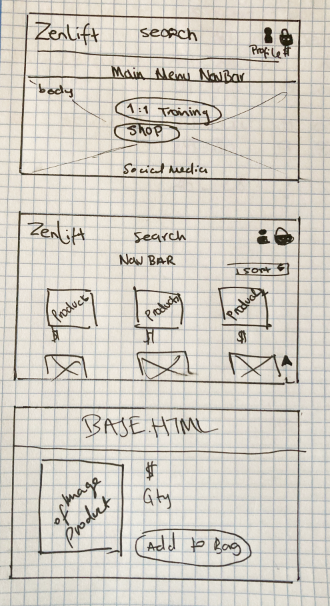 ZenLift search
Profile #
Main Menu NavBar
body
1:1 Training
Shop
Social Media
ZenLift search
NAV BAR
SORT
Product Product Product
$ $ $
BASE.HTML
Image of Product
$
Qty
Add to Bag